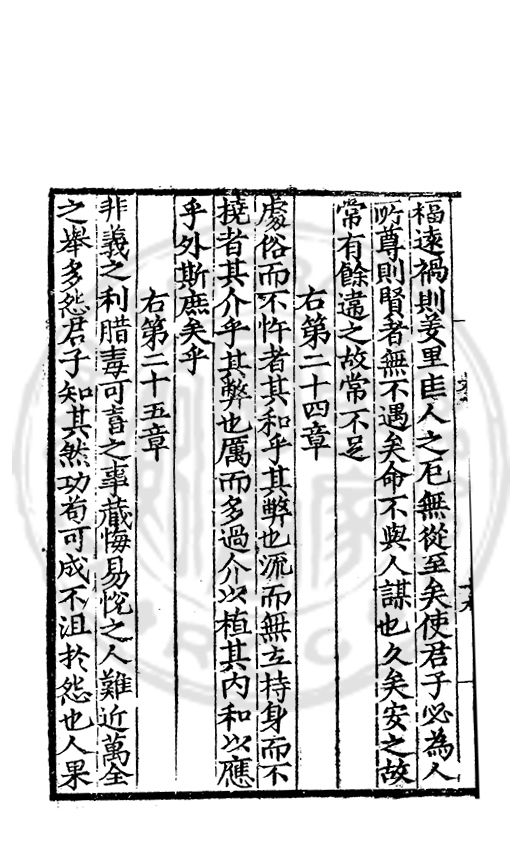 福遠禍則羑里匡人之厄無從至矣使君子必為人
所尊則賢者無不遇矣命不與人謀也久矣安之故
常有餘違之故常不足
右第二十四章
處俗而不忤者其和乎其弊也流而無立持身而不
撓者其介乎其弊也厲而多過介以植其内和以應
乎外斯庶矣乎
右第二十五章
非義之利腊毒可喜之事藏悔易悅之人難近萬全
之舉多怨君子知其然功苟可成不沮於怨也人果